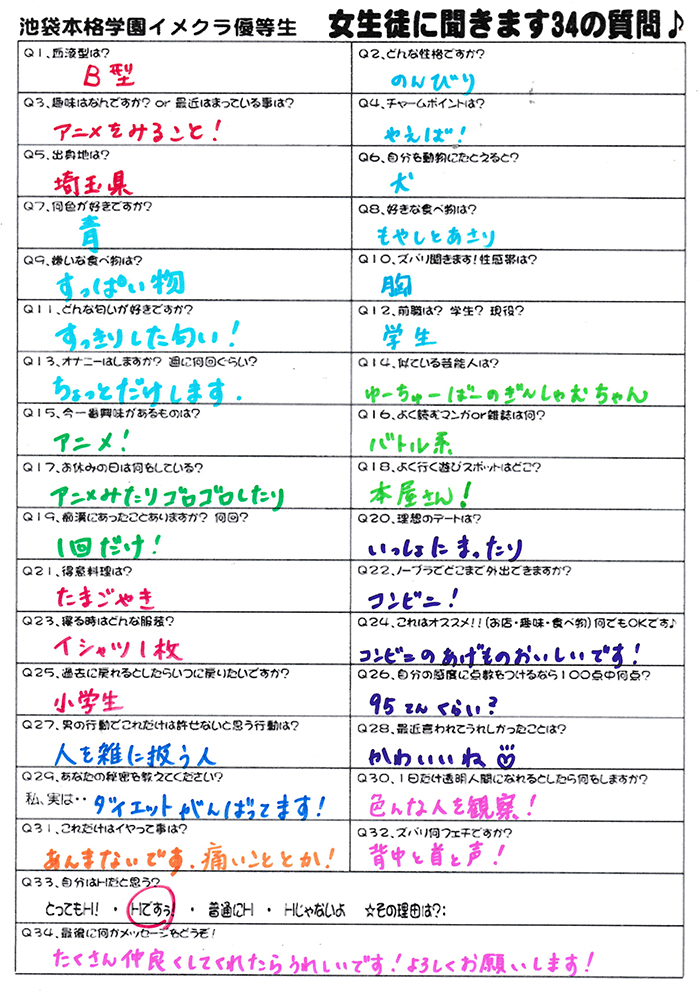 池袋本格学園イメクラ優等生 女生徒に聞きます34の質問♪
Q1、血液型は?
B型
Q2、どんな性格ですか?
のんびり
Q3、趣味はなんですか? or 最近はまっている事は?
アニメをみること!
Q4、チャームポイントは?
やえば!
Q5、出身地は?
埼玉県
Q6、自分も動物にたとえると?
犬
Q7、何色が好きですか?
青
Q8、好きな食べ物は?
もやしとあさり
Q9、嫌いな食べ物は?
すっぱい物
Q10、ズバリ聞きます!性感帯は?
胸
Q11、どんな匂いが好きですか?
すっきりした匂い!
Q12、前職は? 学生? 現役?
学生
Q13、オナニーはしますか? 週に何回ぐらい?
ちょっとだけします.
Q14、似ている芸能人は?
ゆーちゅーばーのぎんしゃむちゃん
Q15、今一番興味があるものは?
アニメ!
Q16、よく読むマンガor雑誌は何?
バトル系
Q17、お休みの日は何もしている?
アニメみたりゴロゴロしたり
Q18、よく行く遊びスポットはどこ?
本屋さん!
Q19、痴漢にあったことありますか? 何回?
1回だけ!
Q20、理想のデートは?
いっしょにまったり
Q21、得意料理は?
たまごやき
Q22、ノーブラでどこまで外出できますか?
コンビニ!
Q23、寝る時はどんな服装?
Tシャツ1枚
Q24、これはオススメ!!(お店・趣味・食べ物)何でもOKです♪
コンビニのあげものおいしいです!
Q25、過去に戻れるとしたらいつに戻りたいですか?
小学生
Q26、自分の感度に点数もつけるなら100点中何点?
95てんくらい?
Q27、男の行動でこれだけは許せないと思う行動は?
人を雑に扱う人
Q28、最近言われてうれしかったことは?
かわいいね
Q29、あなたの秘密も教えてください?
私、実は‥ダイエットがんばってます!
Q30、1日だけ透明人間になれるとしたら何もしますか?
色んな人を観察!
Q31、これだけはイヤって事は?
あんまないです.痛いこととか!
Q32、ズバリ何フェチですか?
背中と首と声!
Q33、自分はHだと思う?
とってもH! ・ Hですぅ! ・ 普通にH ・ Hじゃないよ ☆その理由は?:
Q34、最後に何かメッセージもどうぞ!
たくさん仲良くしてくれたらうれしいです!よろしくお願いします!